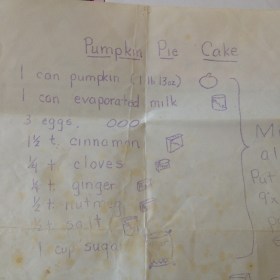 Pumpkin Pie Cake
1 can pumpkin (1 lb 13oz)
1 can evaporated milk
3 eggs.
1½ t. cinnamon
¼ t cloves
½ t ginger
½ t nutmeg
½ t salt
1 cup sugar
Mi
al
Put
9"x